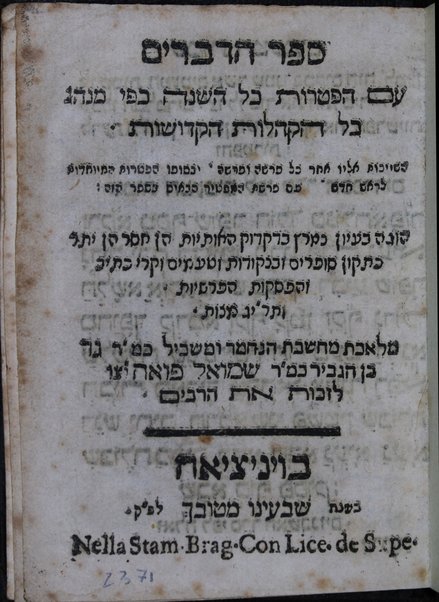 ספר הדברים
עם הפטרות כל השנה כפי מנהג
כל הקהלות הקדושות׃
השייכות אליו אחר כל פרשה ופרשה׳ יבסופו הפטרות המיוחדות
לראש חדש׳ עם פרשת המפטיר הבאים בספר הזה׃
הוגה בעיון נמרץ בדקדוק האותיות הן חסר הן יתר
כתקון סופרים ובנקודות וטעמים וקרי כתיב
והפסקות הפרשיות׳
ותרי״ג מצות׳
מלאכת מחשבת הנחמד ומשכיל כמ״ר גד
בן הגביר כמ״ר שמואל פואה יצו
לזכות את הרבים׳
בויניציאה
בשנת שבענו מטובך לפ״ק׳
Nella Stam. Brag. Con Lice. de Supe.
2371